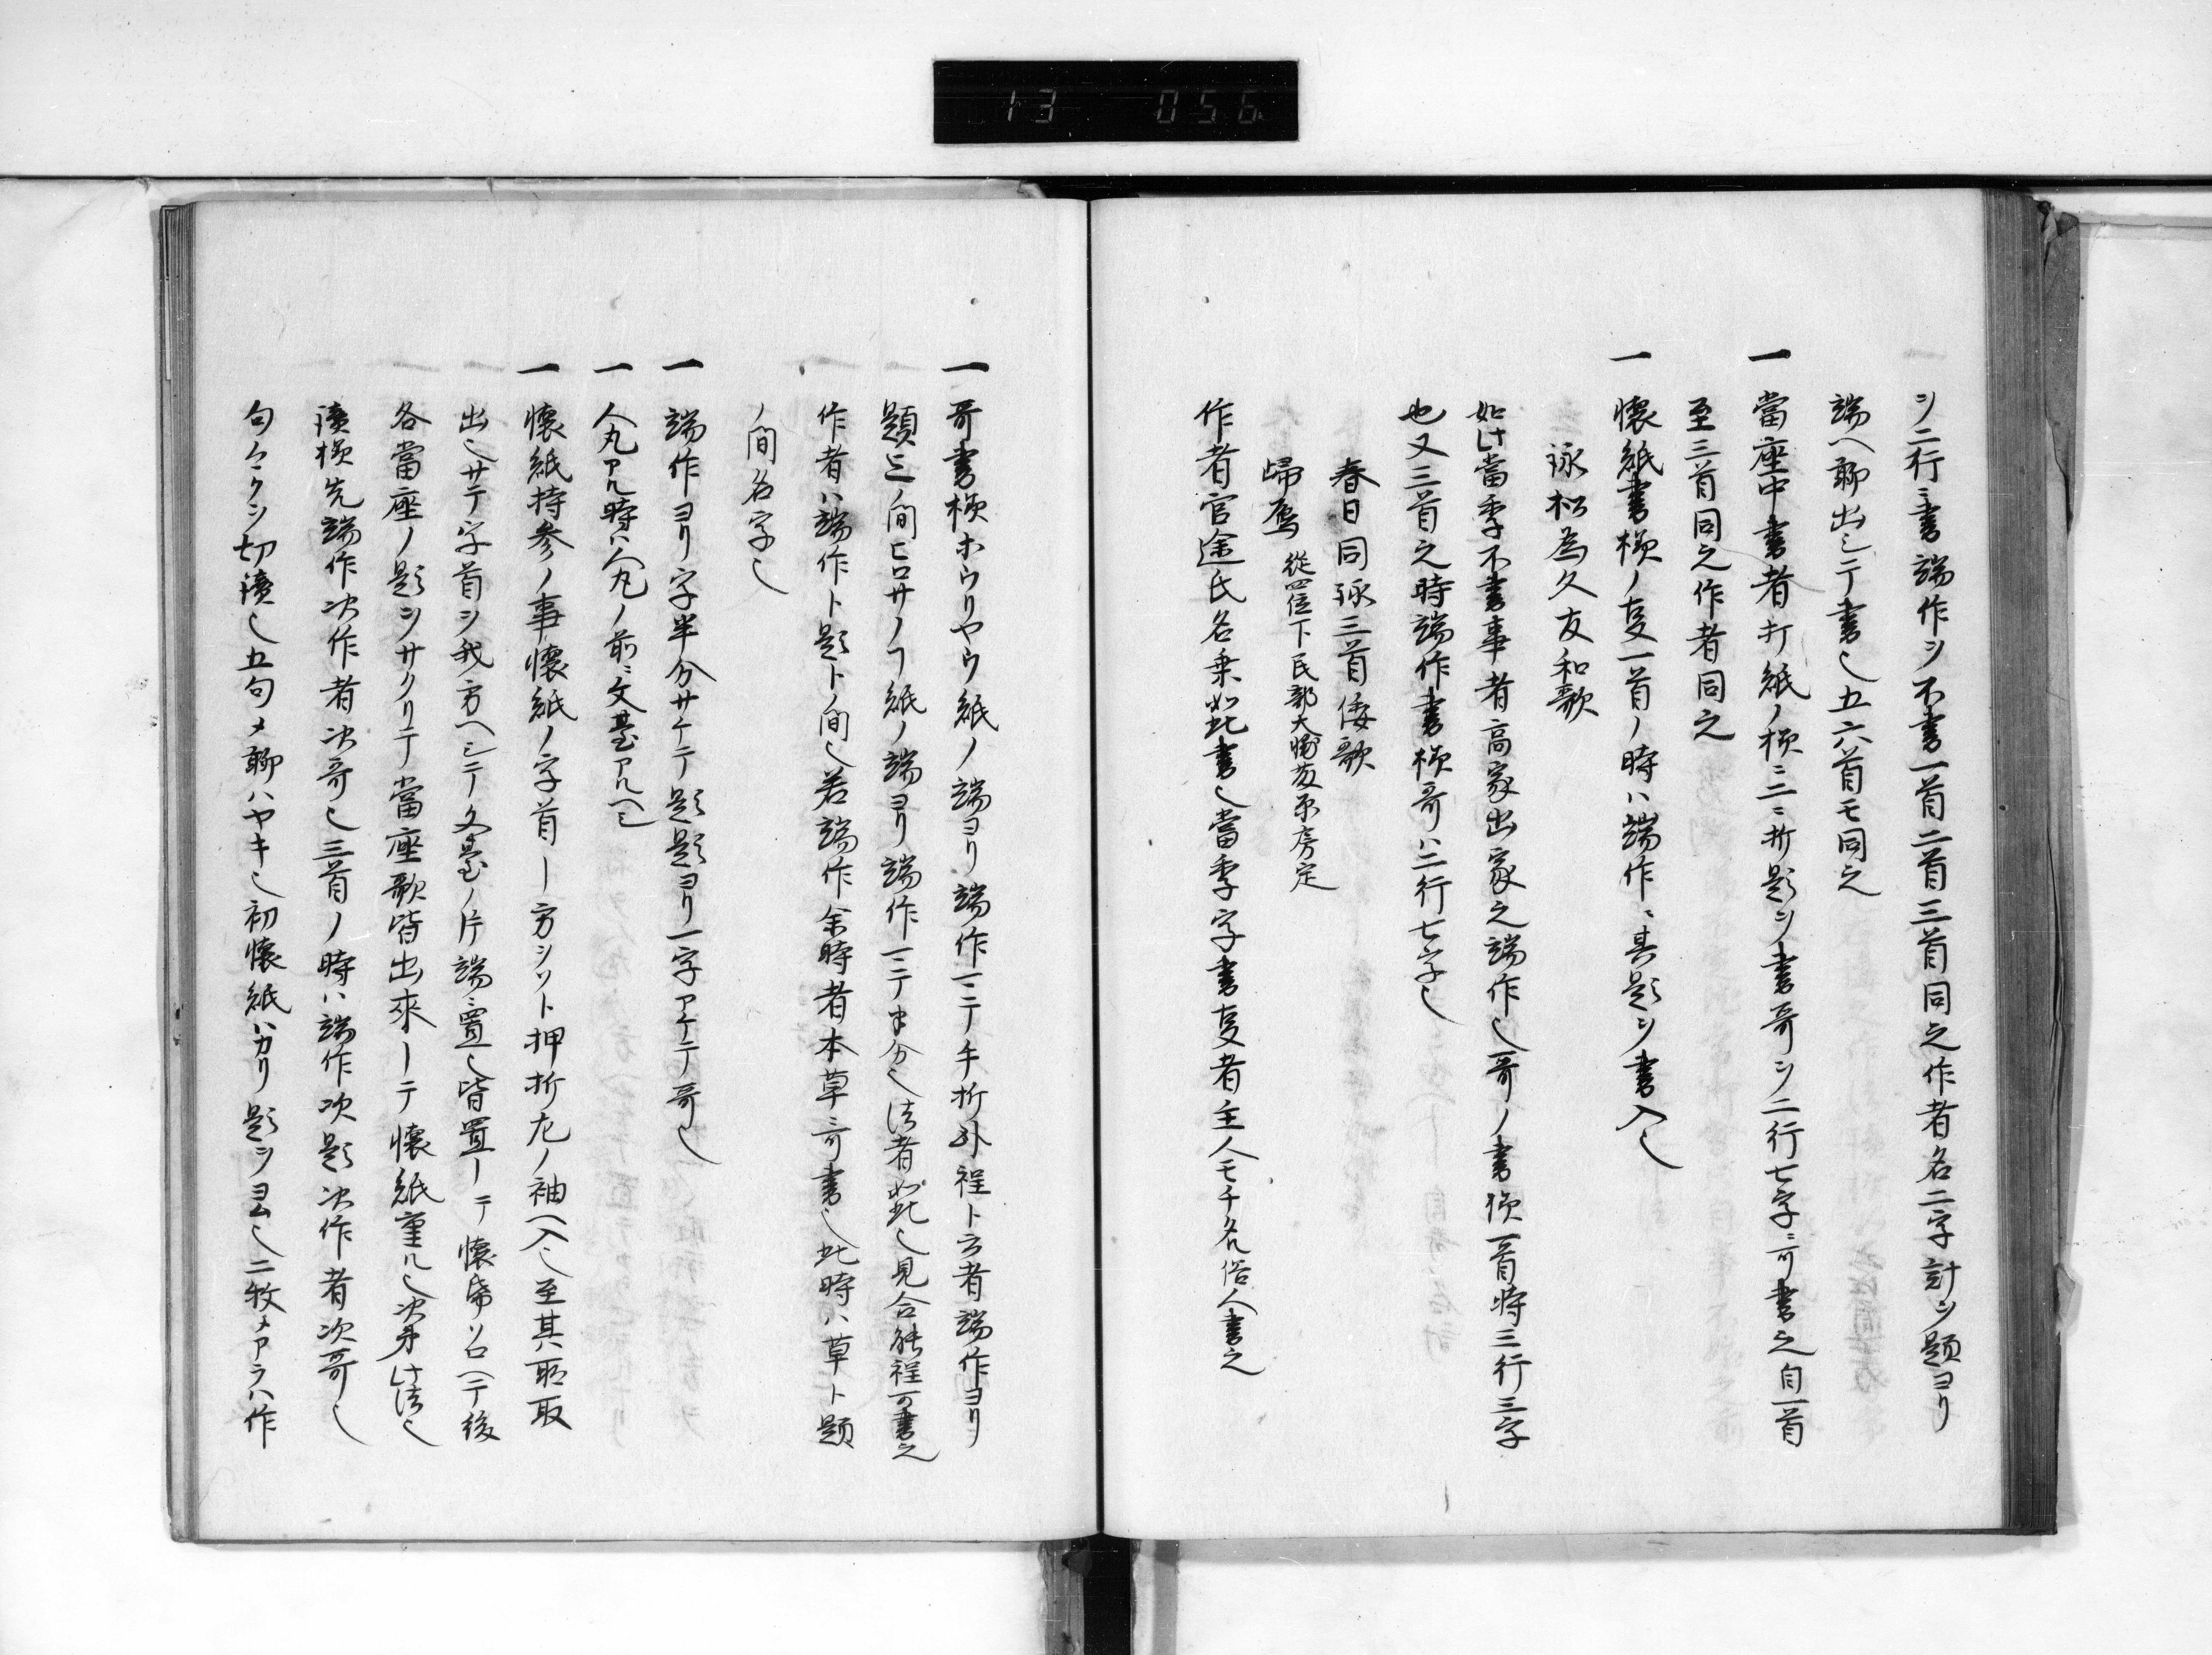 13 056
ヲ二行ニ書端作ヲ不書一首二首三首同之作者名二字計ヲ題ヨリ
端ヘ聊出シテ書也五六首モ同之
一 當座中書者打紙ノ様ニ三ニ折題ヲ書哥ヲ二行七字ニ可書之自一首
至三首同之作者同之
一 懐紙書様ノ叓一首ノ時ハ端作ニ其題ヲ書入也
詠松為久友和歌
如此當季不書事者高家出家之端作也哥ノ書様一首時三行三字
也又三首之時端作書様哥ハ二行七字也
春日同詠三首倭歌
帰鴈 従四位下民部大輔藤原房定
作者官途氏名乗如此書也當季字書叓者主人モチ各俗人書之
一 哥書様ホウリヤウ紙ノ端ヨリ端作一ニテ手折外程ト云者端作ヨリ
題上ノ間ヒロサノフ紙ノ端ヨリ端作一ニテ半分也法者如此也見合能程可書之
作者ハ端作ト題トノ間也若端作余時者本草ニ可書也此時ハ草ト題
ノ間名字也
一 端作ヨリ字半分サケテ題題ヨリ一字アケテ哥也
一 人丸アル時ハ人丸ノ前ニ文臺アルヘシ
一 懐紙持参ノ事懐紙ノ字首ノ方ヲソト押折左ノ袖ヘ入也至其所取
出也サテ字首ヲ我方ヘシテ文臺ノ片端ニ置也皆置ーテ懐帋ソロヘテ後
各當座ノ題ヲサクリテ當座歌皆出來ーテ懐紙重ル也次第此法也
讀様先端作次作者次哥也三首ノ時ハ端作次題次作者次哥也
句ククヲ切讀也五句メ聊ハヤキ也初懐紙ハカリ題ヲヨム也二枚メアラハ作